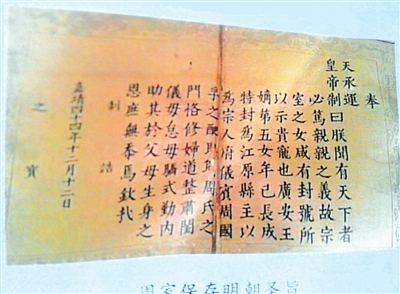 奉
天承運
皇帝制曰朕聞有天下者
必篤親親之義故宗
室之女咸有封號所
以示貴寵也廣安王
嫡第五女年已長成
特封為江原縣主以
為宗人府儀賓周國
之配 周氏之
門恪修婦道整肅閨
儀毋怠毋驕式勤內
助其於父母生身之
恩庶無忝焉欽哉
制誥
嘉靖四十四年十二月十二日
之寶
周家保存明朝圣旨